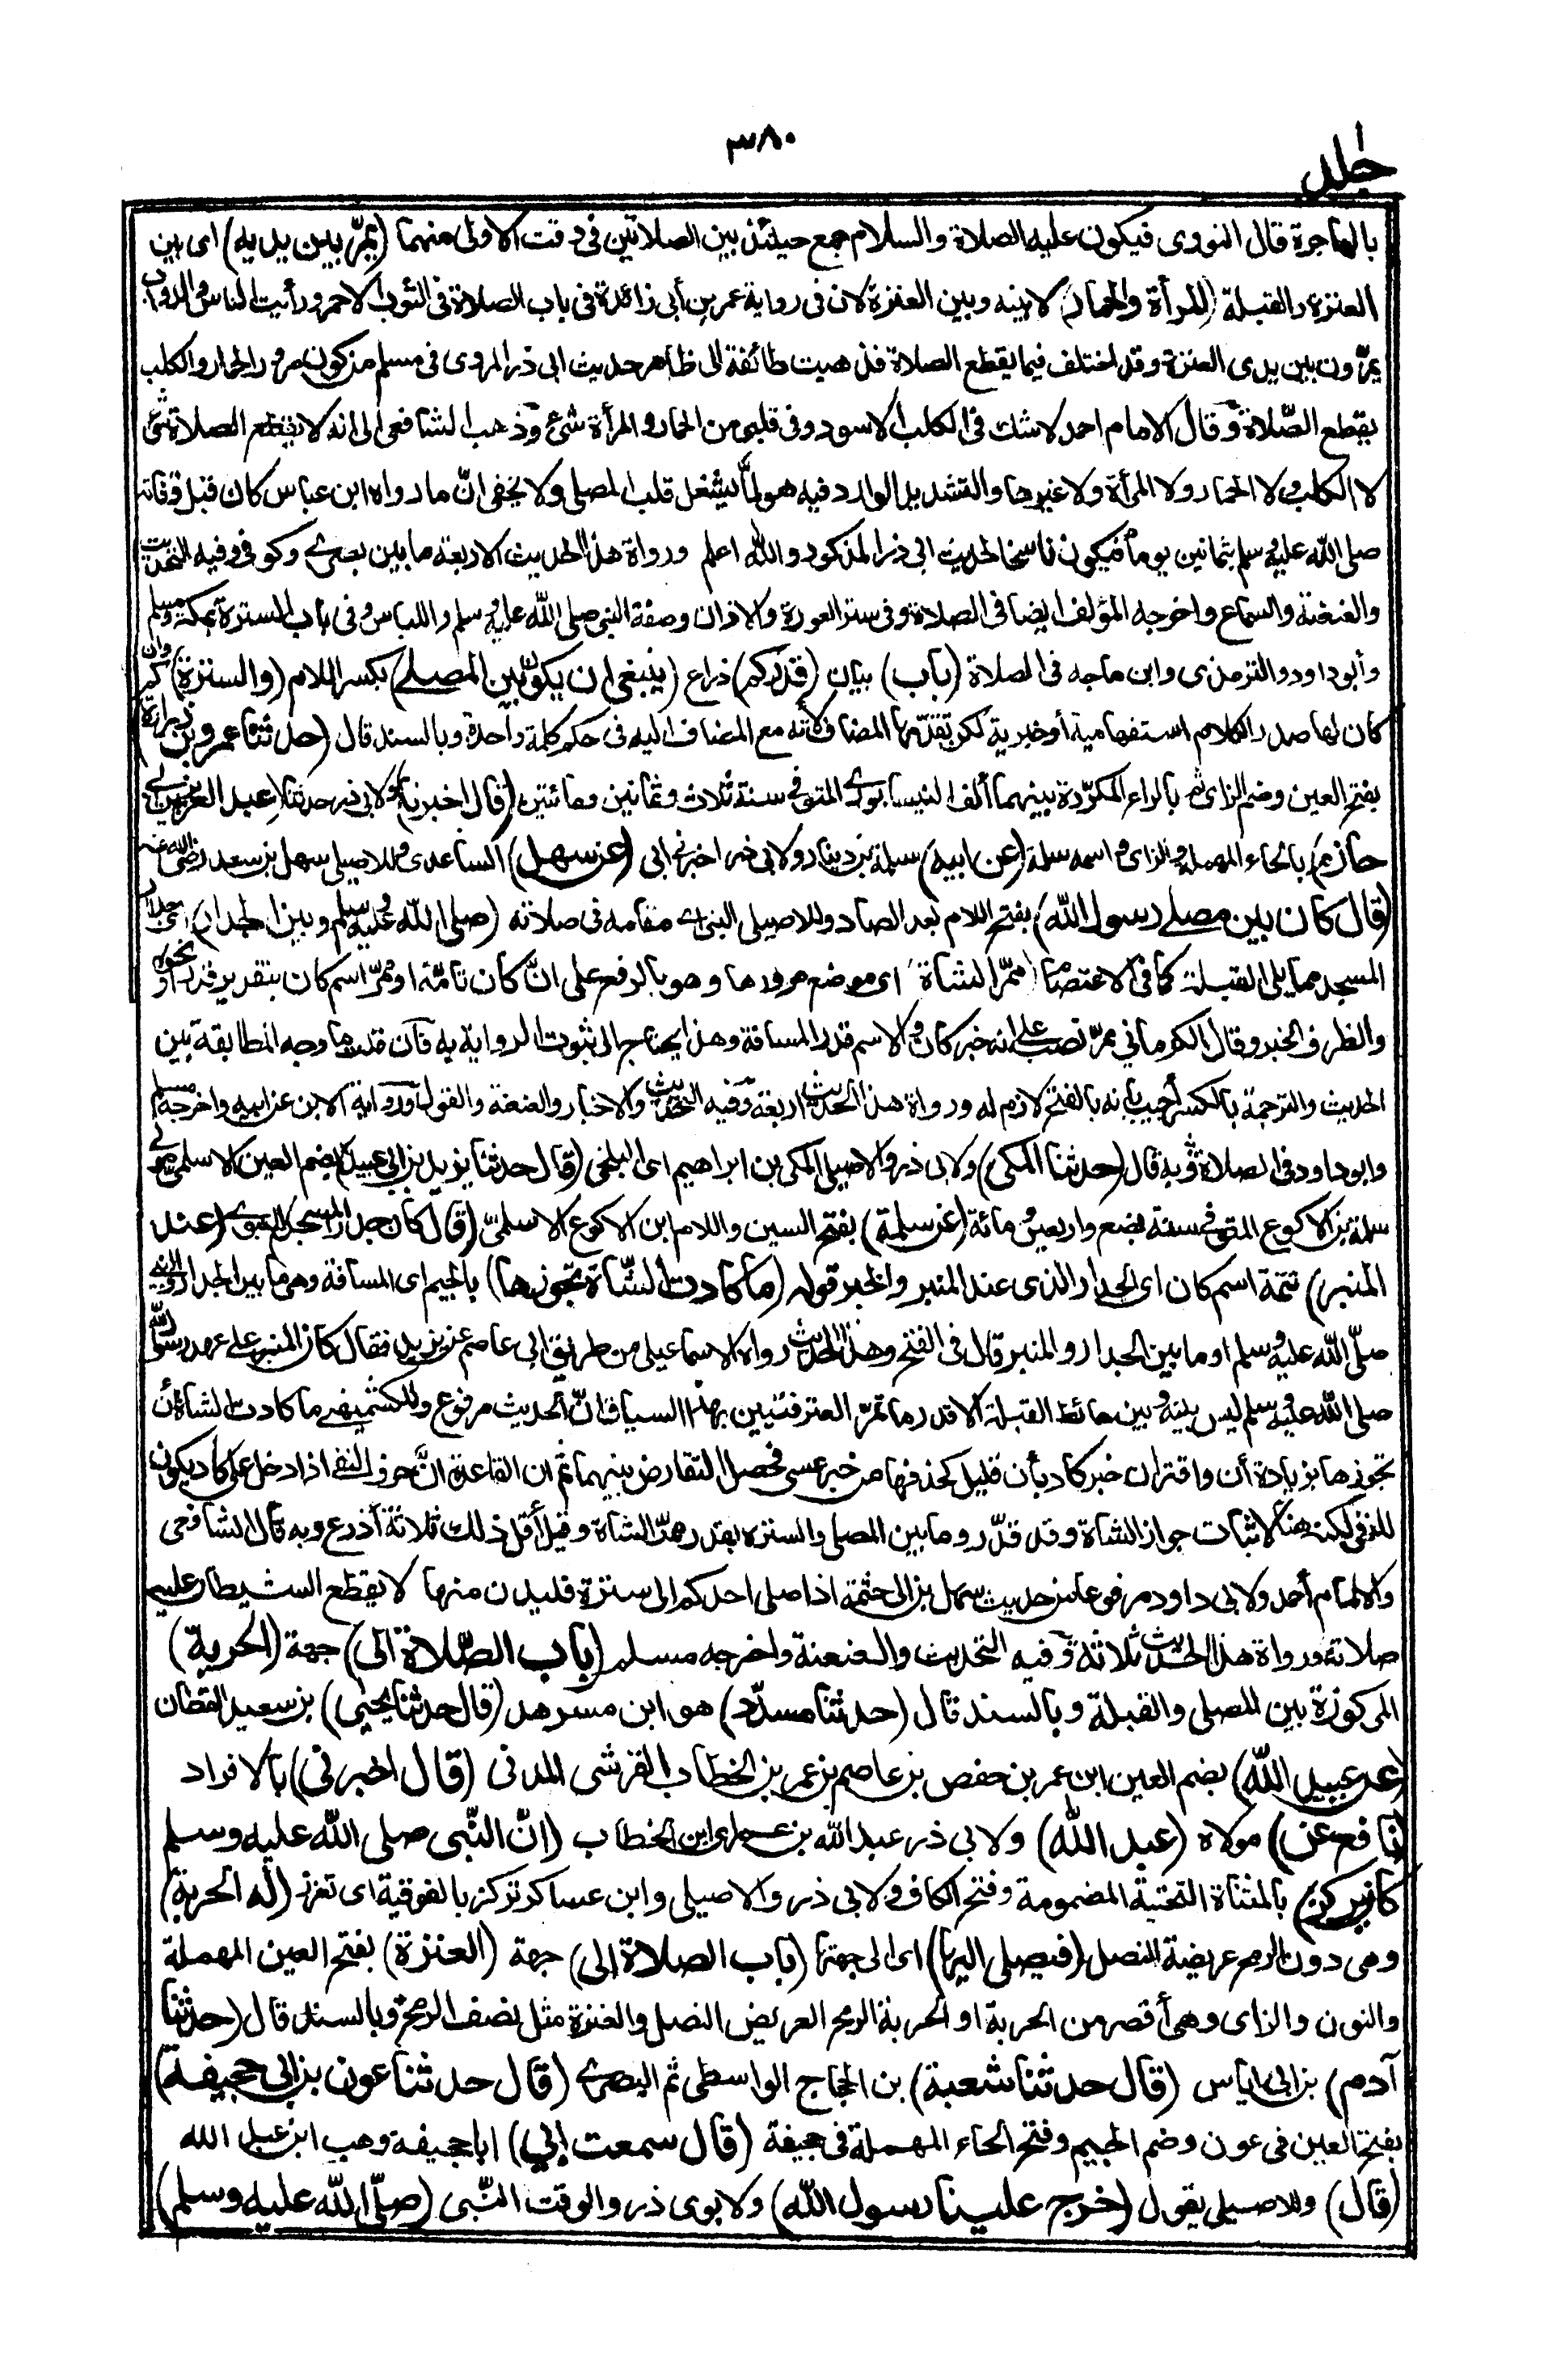 ٣٨٠
جلد
بالهاجرة قال النووى فيكون عليه الصلاة والسلام جمع حينئذ بين الصلاتين فى وقت الاولى منهما (يمرّ بين يديه) اى بين
العنزة والقبلة (المرأة والحمار) لا بينه وبين العنزة لان فى رواية عمر بن أبى زائدة فى باب الصلاة فى الثوب الاحمر ورأيت الناس والدواب
يمرّون بين يدى العنزة وقد اختلف فيما يقطع الصلاة فذهبت طائفة الى ظاهر حديث ابى ذر المروى فى مسلم من كون مرور الحمار والكلب
يقطع الصّلاة وقال الامام احمد لا شك فى الكلب الاسود وفى قلبى من الحمار والمرأة شىء وذهب الشافعى الى انه لا يقطع الصلاة شئ
لا الكلب ولا الحمار ولا المرأة ولا غيرها والتشديد الوارد فيه هو لما يشغل قلب المصلى ولا يخفى انّ ما رواه ابن عباس كان قبل وفاته
صلى الله عليه وسلم بثمانين يوما فيكون ناسخا لحديث ابى ذر المذكور والله اعلم ورواة هذا الحديث الاربعة ما بين بصرى وكوفى وفيه التحديث
والعنعنة والسماع واخرجه المؤلف ايضا فى الصلاة وفى ستر العورة والاذان وصفة النبى صلى الله عليه وسلم واللباس وفى باب السترة بمكة ومسلم
وأبوداود والترمذى وابن ماجه فى الصلاة (باب) بيان (قدركم) ذراع (ينبغى ان يكون بين المصلى) بكسر اللام (والسترة) كم وان
كان لها صدر الكلام استفهامية أو خبرية لكن تقدّمها المضاف لأنه مع المضاف اليه فى حكم كلمة واحدة وبالسند قال (حدثنا عمرو بن زرارة)
بفتح العين وضم الزاى ثم بالراء المكرّرة بينهما ألف النيسابورى المتوفى سنة ثلاث وثمانين ومائتين (قال اخبرنا) ولابى ذر حدثنا (عبد العزيز بن ابى
حازم) بالحاء المهملة والزاى واسمه سلمة (عن ابيه) سلمة بن دينار ولابى ذر اخبرنى ابى (عن سهل) الساعدى وللاصيلى سهل بن سعد رضى الله عنه
(قال كان بين مصلى رسول الله) بفتح اللام بعد الصاد وللاصيلى النبى اى مقامه فى صلاته (صلى الله عليه وسلم وبين الجدار) اى جدار
المسجد مما يلى القبلة كما فى الاعتصام (ممرّ الشاة) اى موضع مرورها وهو بالرفع على انّ كان تامّة او ممرّ اسم كان بتقدير قدر او نحوه
والظرف الخبر وقال الكرمانى ممرّ نصب على انه خبر كان والاسم قدر المسافة وهذا يحتاج الى ثبوت الرواية به فان قلت ما وجه المطابقة بين
الحديث والترجمة بالكسر أجيب بأنه بالفتح لازم له ورواة هذا الحديث اربعة وفيه التحديث والاخبار والعنعنة والقول ورواية الابن عن ابيه واخرجه مسلم
وابوداود فى الصلاة وبه قال (حدثنا المكى) ولابى ذر والاصيلى المكى بن ابراهيم اى البلخى (قال حدثنا يزيد بن ابى عبيد) بضم العين الاسلمى مولى
سلمة بن الاكوع المتوفى سنة بضع واربعين ومائة (عن سلمة) بفتح السين واللام ابن الاكوع الاسلمىّ (قال كان جدار المسجد) النبوى (عند
المنبر) تتمة اسم كان اى الجدار الذى عند المنبر والخبر قوله (ما كادت الشّاة تجوزها) بالجيم اى المسافة وهى ما بين الجدار والنبى
صلّى الله عليه وسلم او ما بين الجدار والمنبر قال فى الفتح وهذا الحديث رواه الاسماعيلى من طريق ابى عاصم عن يزيد فقال كان المنبر على عهد رسول الله
صلى الله عليه وسلم ليس بينه وبين حائط القبلة الا قدر ما تمرّ العنز فتبين بهذا السياق انّ الحديث مرفوع وللكشميهنى ما كادت الشاة أن
تجوزها بزيادة أن واقتران خبر كاد بأن قليل كحذفها من خبر عسى فحصل التقارض بينهما ثم ان القاعدة انّ حرف النفى اذا دخل على كاد يكون
للنفى لكنه هنا لاثبات جواز الشاة وقد قدّروا ما بين المصلى والسترة بقدر ممرّ الشاة وقيل أقل ذلك ثلاثة أذرع وبه قال الشافعى
والامام أحمد ولابى داود مرفوعا من حديث سهل بن ابى حثمة اذا صلى احدكم الى سترة فليدن منها لا يقطع الشيطان عليه
صلاته ورواة هذا الحديث ثلاثة وفيه التحديث والعنعنة واخرجه مسلم (باب الصّلاة الى) جهة (الحربة)
المركوزة بين المصلى والقبلة وبالسند قال (حدثنا مسدّد) هو ابن مسرهد (قال حدثنا يحيى) بن سعيد القطان
(عن عبيد الله) بضم العين ابن عمر بن حفص بن عاصم بن عمر بن الخطاب القرشى المدنى (قال اخبرنى) بالافراد
(نافع عن) مولاه (عبد الله) ولابى ذر عبد الله بن عمر اى ابن الخطاب (انّ النّبى صلى الله عليه وسلم
كان يركز) بالمثناة التحتية المضمومة وفتح الكاف ولابى ذر والاصيلى وابن عساكر تركز بالفوقية اى تغرز (له الحربة)
وهى دون الرمح عريضة النصل (فيصلى اليها) اى الى جهتها (باب الصلاة الى) جهة (العنزة) بفتح العين المهملة
والنون والزاى وهى أقصر من الحربة او الحربة الرمح العريض النصل والعنزة مثل نصف الرمح وبالسند قال (حدثنا
آدم) بن ابى اياس (قال حدثنا شعبة) بن الحجاج الواسطى ثم البصرى (قال حدثنا عون بن ابى جحيفة)
بفتح العين فى عون وضم الجيم وفتح الحاء المهملة فى جحيفة (قال سمعت ابى) ابا جحيفة وهب ابن عبد الله
(قال) وللاصيلى يقول (خرج علينا رسول الله) ولابوى ذر والوقت النّبى (صلّى الله عليه وسلم)